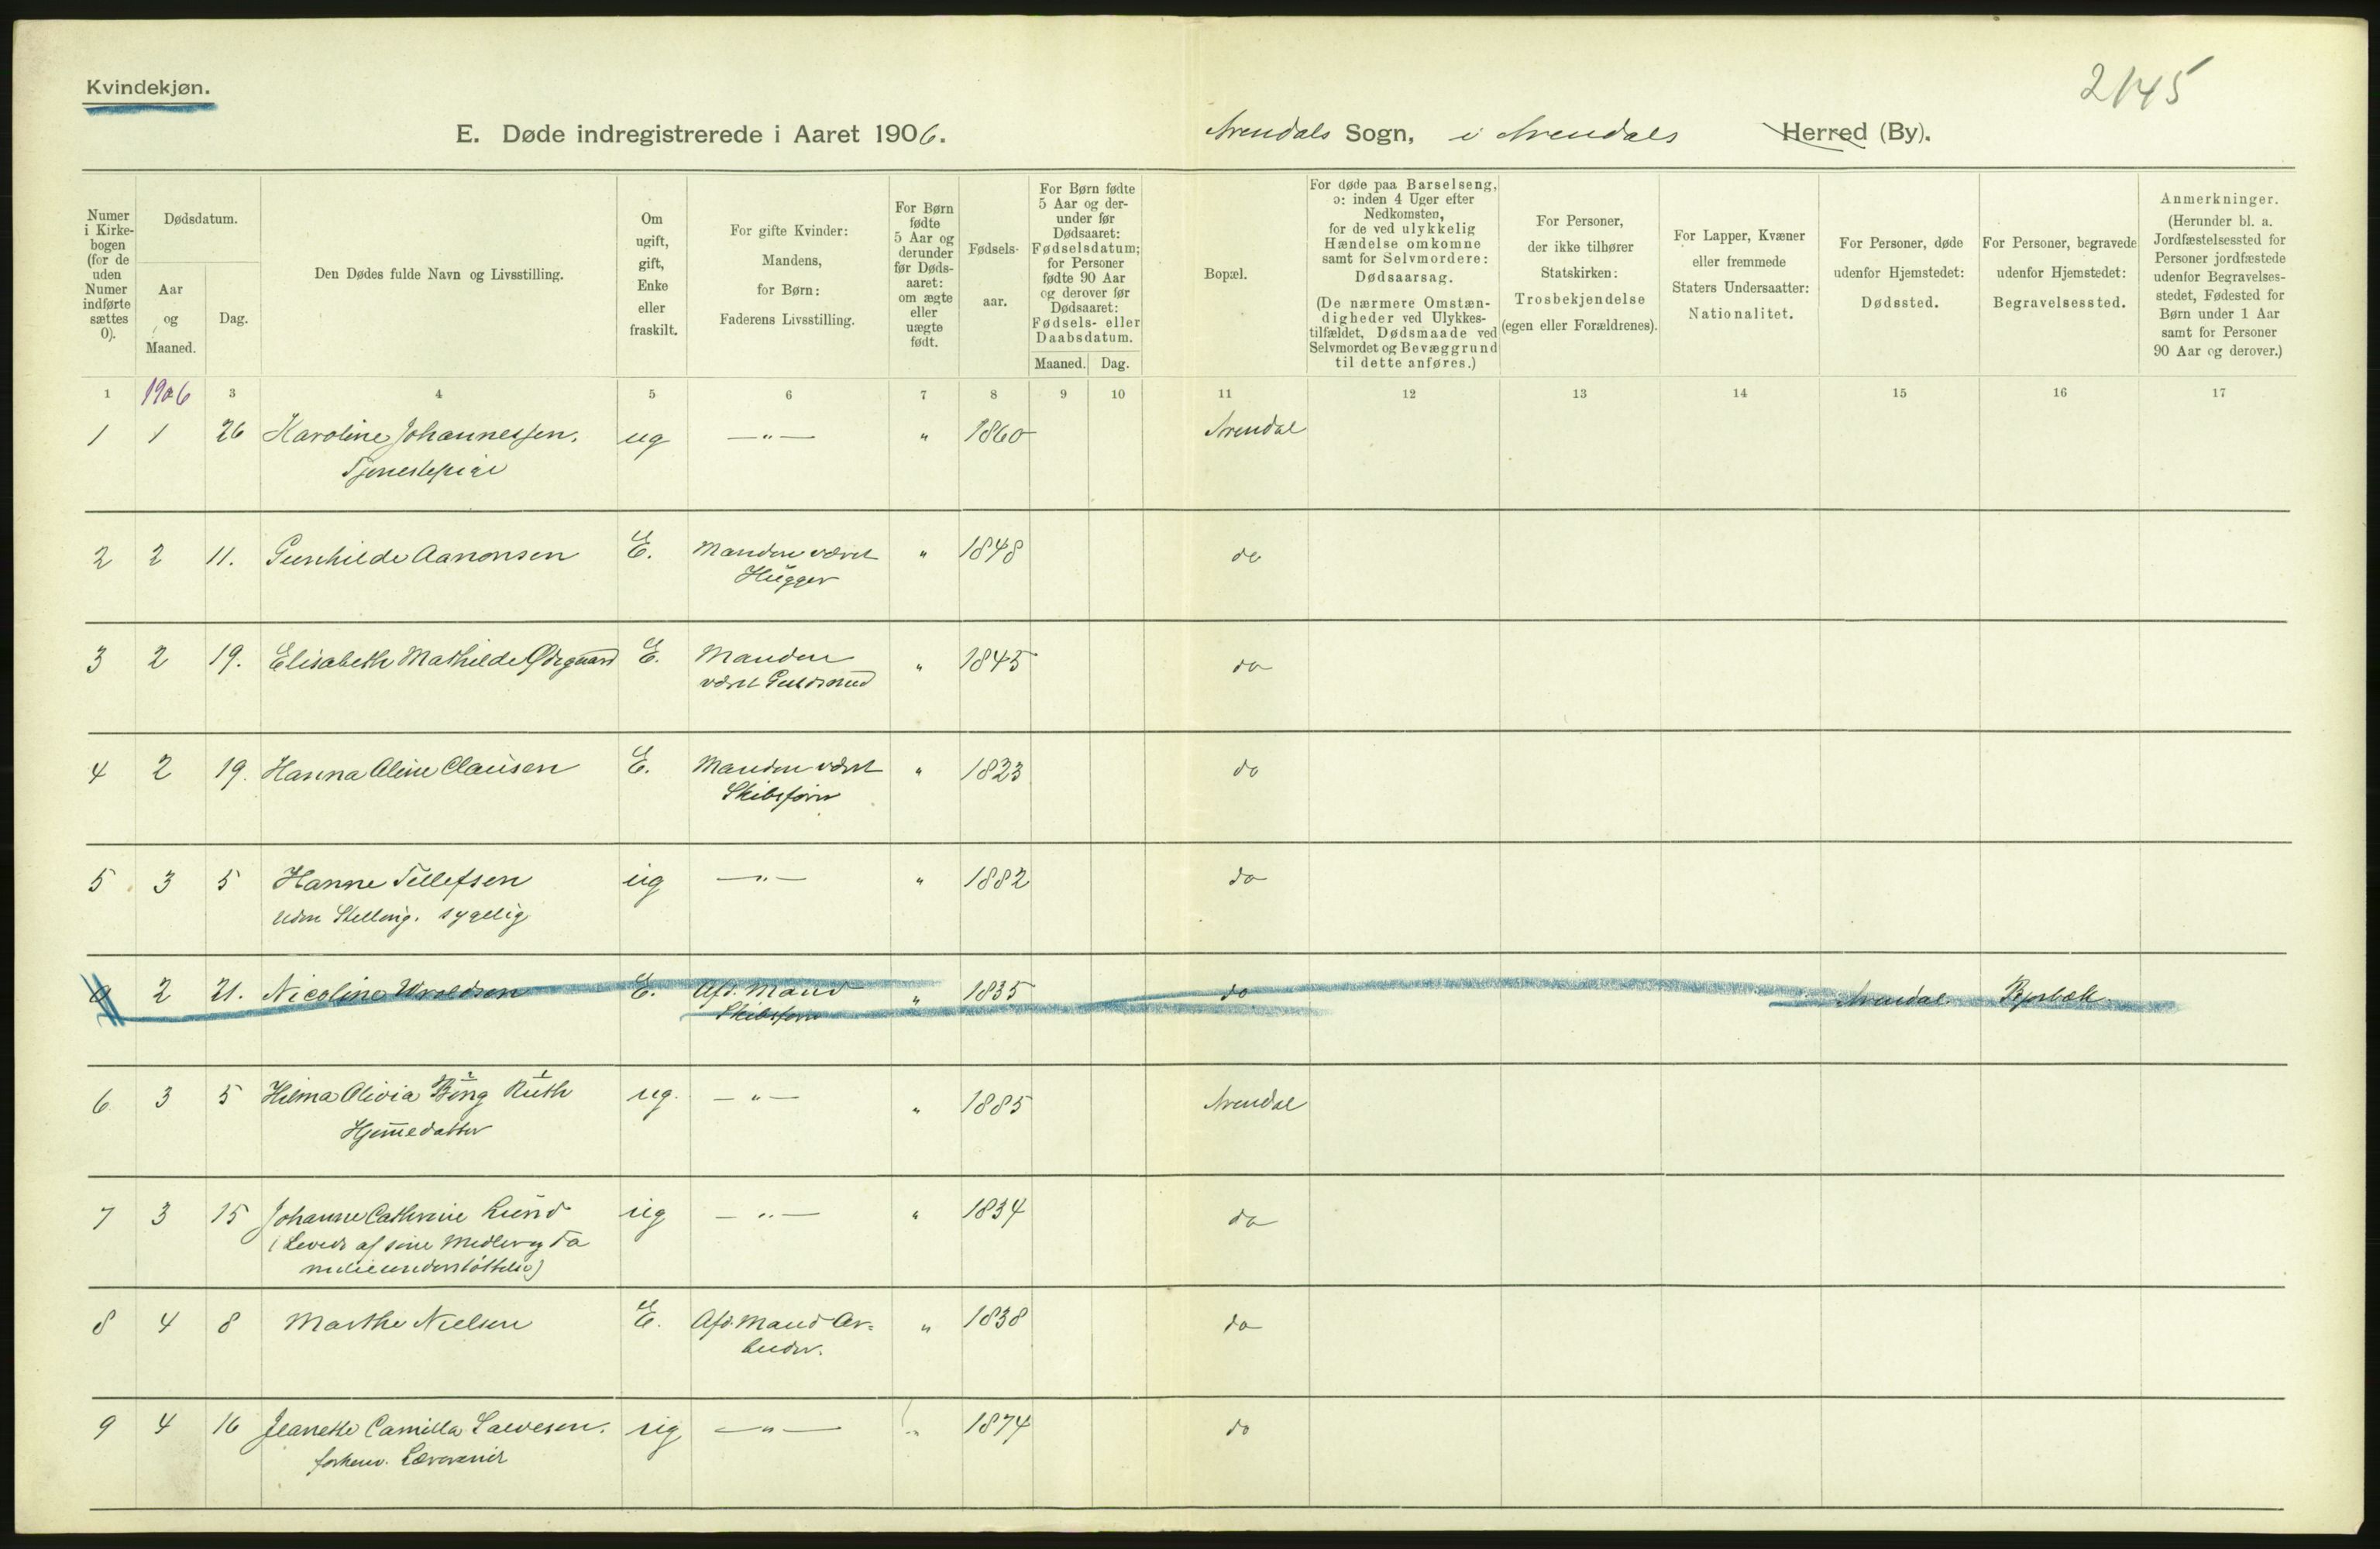 Kvindekjøn.
2145
E. Døde indregistrerede i Aaret 1906.
Arendals Sogn, i Arendals Herred (By).
Numer i Kirke-bogen (for de uden Numer indførte sættes 0).
Dødsdatum.
Aar og Maaned.
Dag.
Den Dødes fulde Navn og Livsstilling.
Om ugift, gift, Enke eller fraskilt.
For gifte Kvinder: Mandens, for Børn: Faderens Livsstilling.
For Børn fødte 5 Aar og derunder før Døds-aaret: om ægte eller uægte født.
Fødsels-aar.
For Børn fødte 5 Aar og der-under før Dødsaaret: Fødselsdatum; for Personer fødte 90 Aar og derover før Dødsaaret: Fødsels- eller Daabsdatum.
Maaned. Dag.
Bopæl.
For døde paa Barselseng, ɔ: inden 4 Uger efter Nedkomsten, for de ved ulykkelig Hændelse omkomne samt for Selvmordere: Dødsaarsag.
(De nærmere Omstæn-digheder ved Ulykkes-tilfældet, Dødsmaade ved Selvmordet og Bevæggrund til dette anføres.)
For Personer, der ikke tilhører Statskirken: Trosbekjendelse (egen eller Forældrenes).
For Lapper, Kvæner eller fremmede Staters Undersaatter: Nationalitet.
For Personer, døde udenfor Hjemstedet: Dødssted.
For Personer, begravede udenfor Hjemstedet: Begravelsessted.
Anmerkninger.
(Herunder bl. a. Jordfæstelsessted for Personer jordfæstede udenfor Begravelses-stedet, Fødested for Børn under 1 Aar samt for Personer 90 Aar og derover.)
1 1906 3 4 5 6 7 8 9 10 11 12 13 14 15 16 17
1 1 26 Karoline Johannessen. ug —"— " 1860 Arendal
Tjenestepige
2 2 11. Gunhilde Aanonsen E. Manden været " 1848 do
Hugger
3 2 19. Elisabeth Mathilde Ødegaard E. Manden " 1845 do
været Guldsmed
4 2 19. Hanna Aline Clausen E. Manden været " 1823 do
Skibsfører
5 3 5 Hanne Tellefsen ug —"— " 1882 do
uden Stilling. sygelig
0 2 21. Nicoline Wroldsen E. Afd. Mand " 1835 do Arendal. Bjorbæk
Skibsfører
6 3 5 Hilma Olivia Bing Ruth ug. —"— " 1885 Arendal
Hjemmedatter
7 3 15 Johanne Cathrine Lund ug —"— " 1834 do
(Leveds af sine Midler og Fa
milieunderstøttelse)
8 4 8 Marthe Nielsen E. Afd. Mand Ar= " 1838 do
beider.
9 4 16 Jeanette Camilla Salvesen. ug —"— " 1874 do
forhenv. Lærerinde